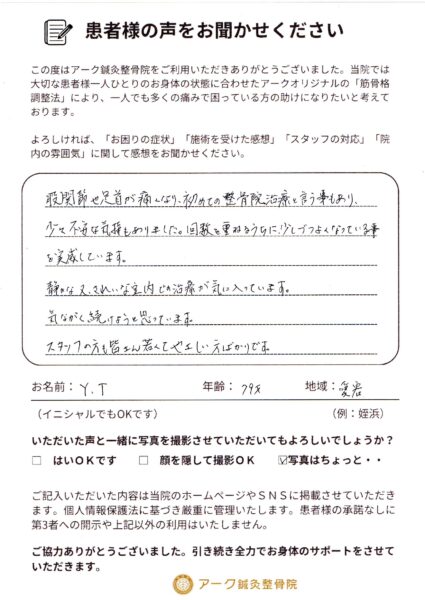 患者様の声をお聞かせください
この度はアーク鍼灸整骨院をご利用いただきありがとうございました。当院では
大切な患者様一人ひとりのお身体の状態に合わせたアークオリジナルの「筋骨格
調整法」により、一人でも多くの痛みで困っている方の助けになりたいと考えて
おります。
よろしければ、「お困りの症状」「施術を受けた感想」「スタッフの対応」「院
内の雰囲気」に関して感想をお聞かせください。
股関節や足首が痛くなり、初めての整骨院治療と言う事もあり、
少々不安な気持もありました。回数を重ねるうちに、少しづつよくなっている事
を実感しています。
静かなえ、きれいな室内での治療が気に入っています。
気ながく続けようと思っています。
スタッフの方も皆さん若くてやさしい方ばかりです。
お名前：Y.T 年齢：79才 地域：愛宕
（イニシャルでもOKです） （例：姪浜）
いただいた声と一緒に写真を撮影させていただいてもよろしいでしょうか？
□ はいＯＫです □ 顔を隠して撮影OK ☑写真はちょっと・・
ご記入いただいた内容は当院のホームページやＳＮＳに掲載させていただき
ます。個人情報保護法に基づき厳重に管理いたします。患者様の承諾なしに
第3者への開示や上記以外の利用はいたしません。
ご協力ありがとうございました。引き続き全力でお身体のサポートをさせて
いただきます。
アーク鍼灸整骨院